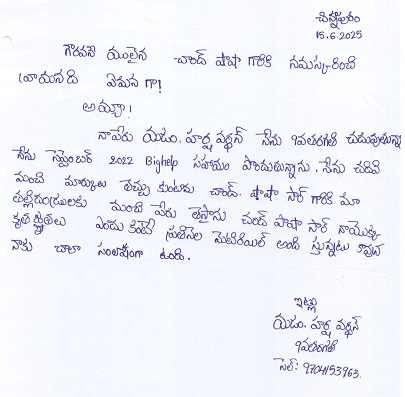 చిన్నాపురం
15.6.2025
గౌరవనీ యులైన చాంద్ పాషా గారికి నమస్కరించి
వ్రాయునది ఏమన గా!
అయ్యా!
నాపేరు యడం. హర్ష వర్ధన్ నేను 9వతరగతి చదువుతున్నా
నేను సెప్టెంబర్ 2022 Bighelp సహాయం పొందుతున్నాను. నేను చదివి
మంచి మార్కులు తెచ్చు కుంటాను చాంద్. పాషా సార్ గారికి మా
తల్లిదండ్రులకు మంచి పేరు తెస్తాను చంద్ పాషా సార్ నాయొక్క
కృతజ్ఞతలు ఎందు కంటే ప్రతినెల మెటిరియల్ అంది స్తున్నటు కావున
నాకు చాలా సంతోషంగా ఉంది.
ఇట్లు
యడం. హర్ష వర్ధన్
9వతరగతి
సెల్: 9704153963.